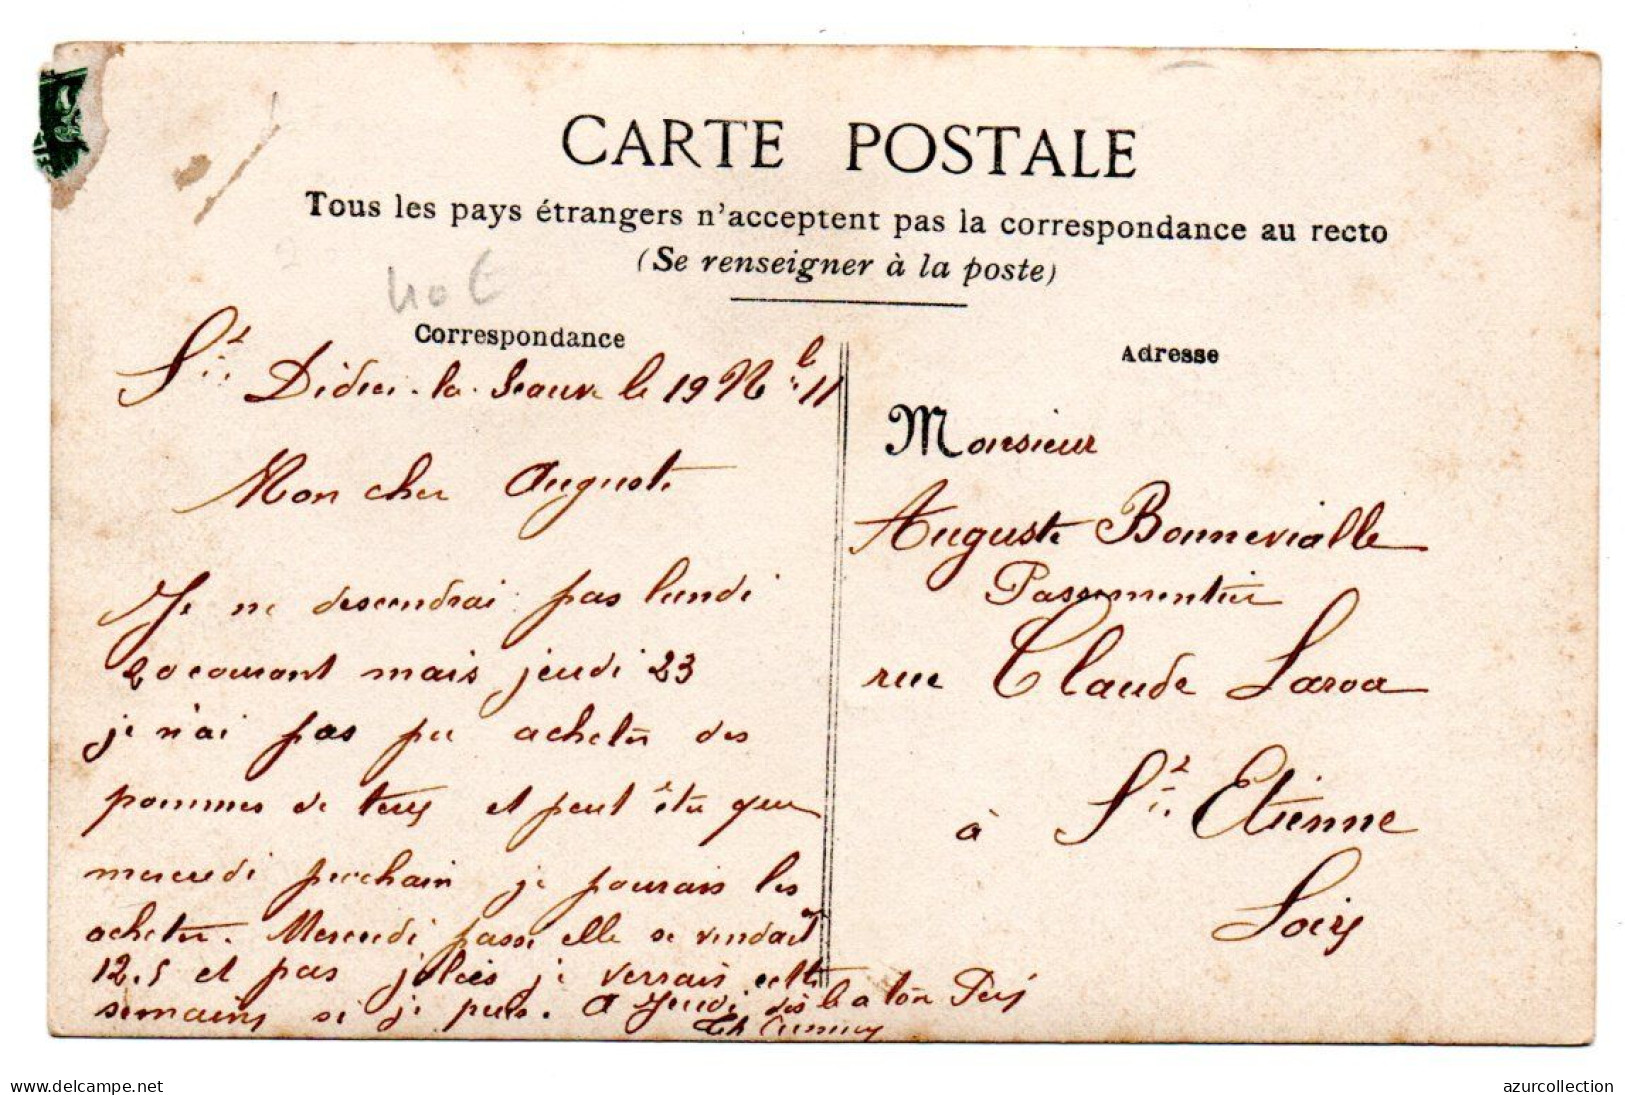 CARTE POSTALE
Tous les pays étrangers n'acceptent pas la correspondance au recto
(Se renseigner à la poste)
40 €
Correspondance
Adresse
St Didier-la-Seauve le 19 Nbre 11
Mon cher Auguste
Je ne descendrai pas lundi
20 courant mais jeudi 23
je n'ai pas pu acheter des
pommes de terre et peut être que
mercredi prochain je pourais les
acheter. Mercredi passé elle se vendait
12.5 et pas jolies je verrais cette
semaine si je puis. A Jeudi
Monsieur
Auguste Bonnevialle
Passementier
rue Claude Laroa
à St Etienne
Loire
delcampe.net
azurcollection